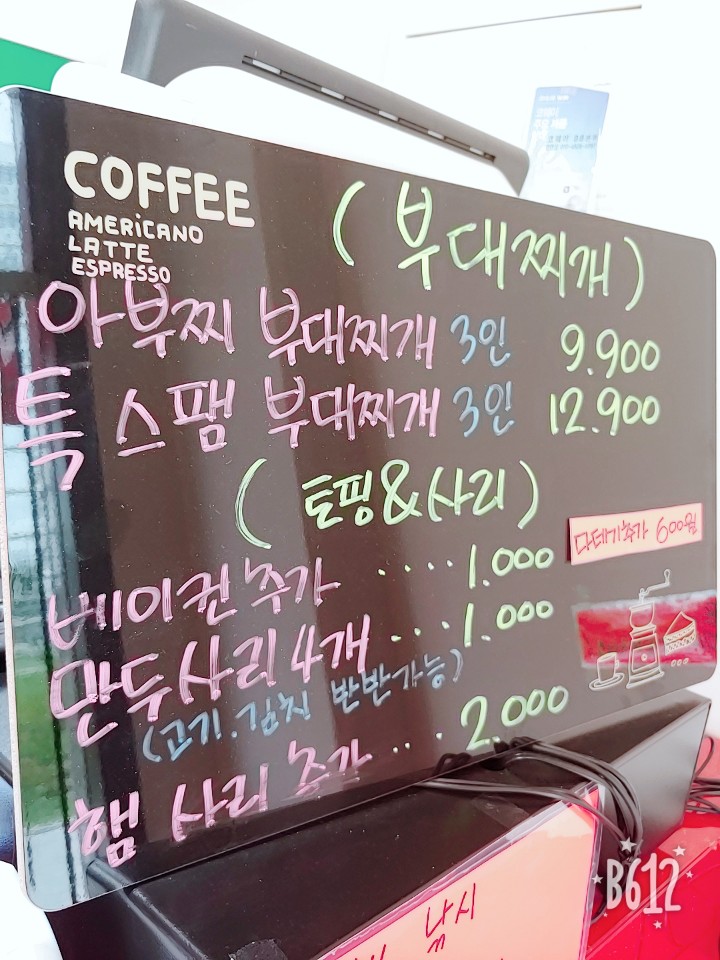 COFFEE
AMERICANO
LATTE
ESPRESSO
(부대찌개)
아부찌 부대찌개 3인 9.900
특 스팸 부대찌개 3인 12.900
(토핑&사리)
다데기추가 600원
베이컨 추가 ････ 1.000
만두사리 4개 ... 1.000
(고기.김치 반반가능)
햄 사리 추가 ... 2.000
B612